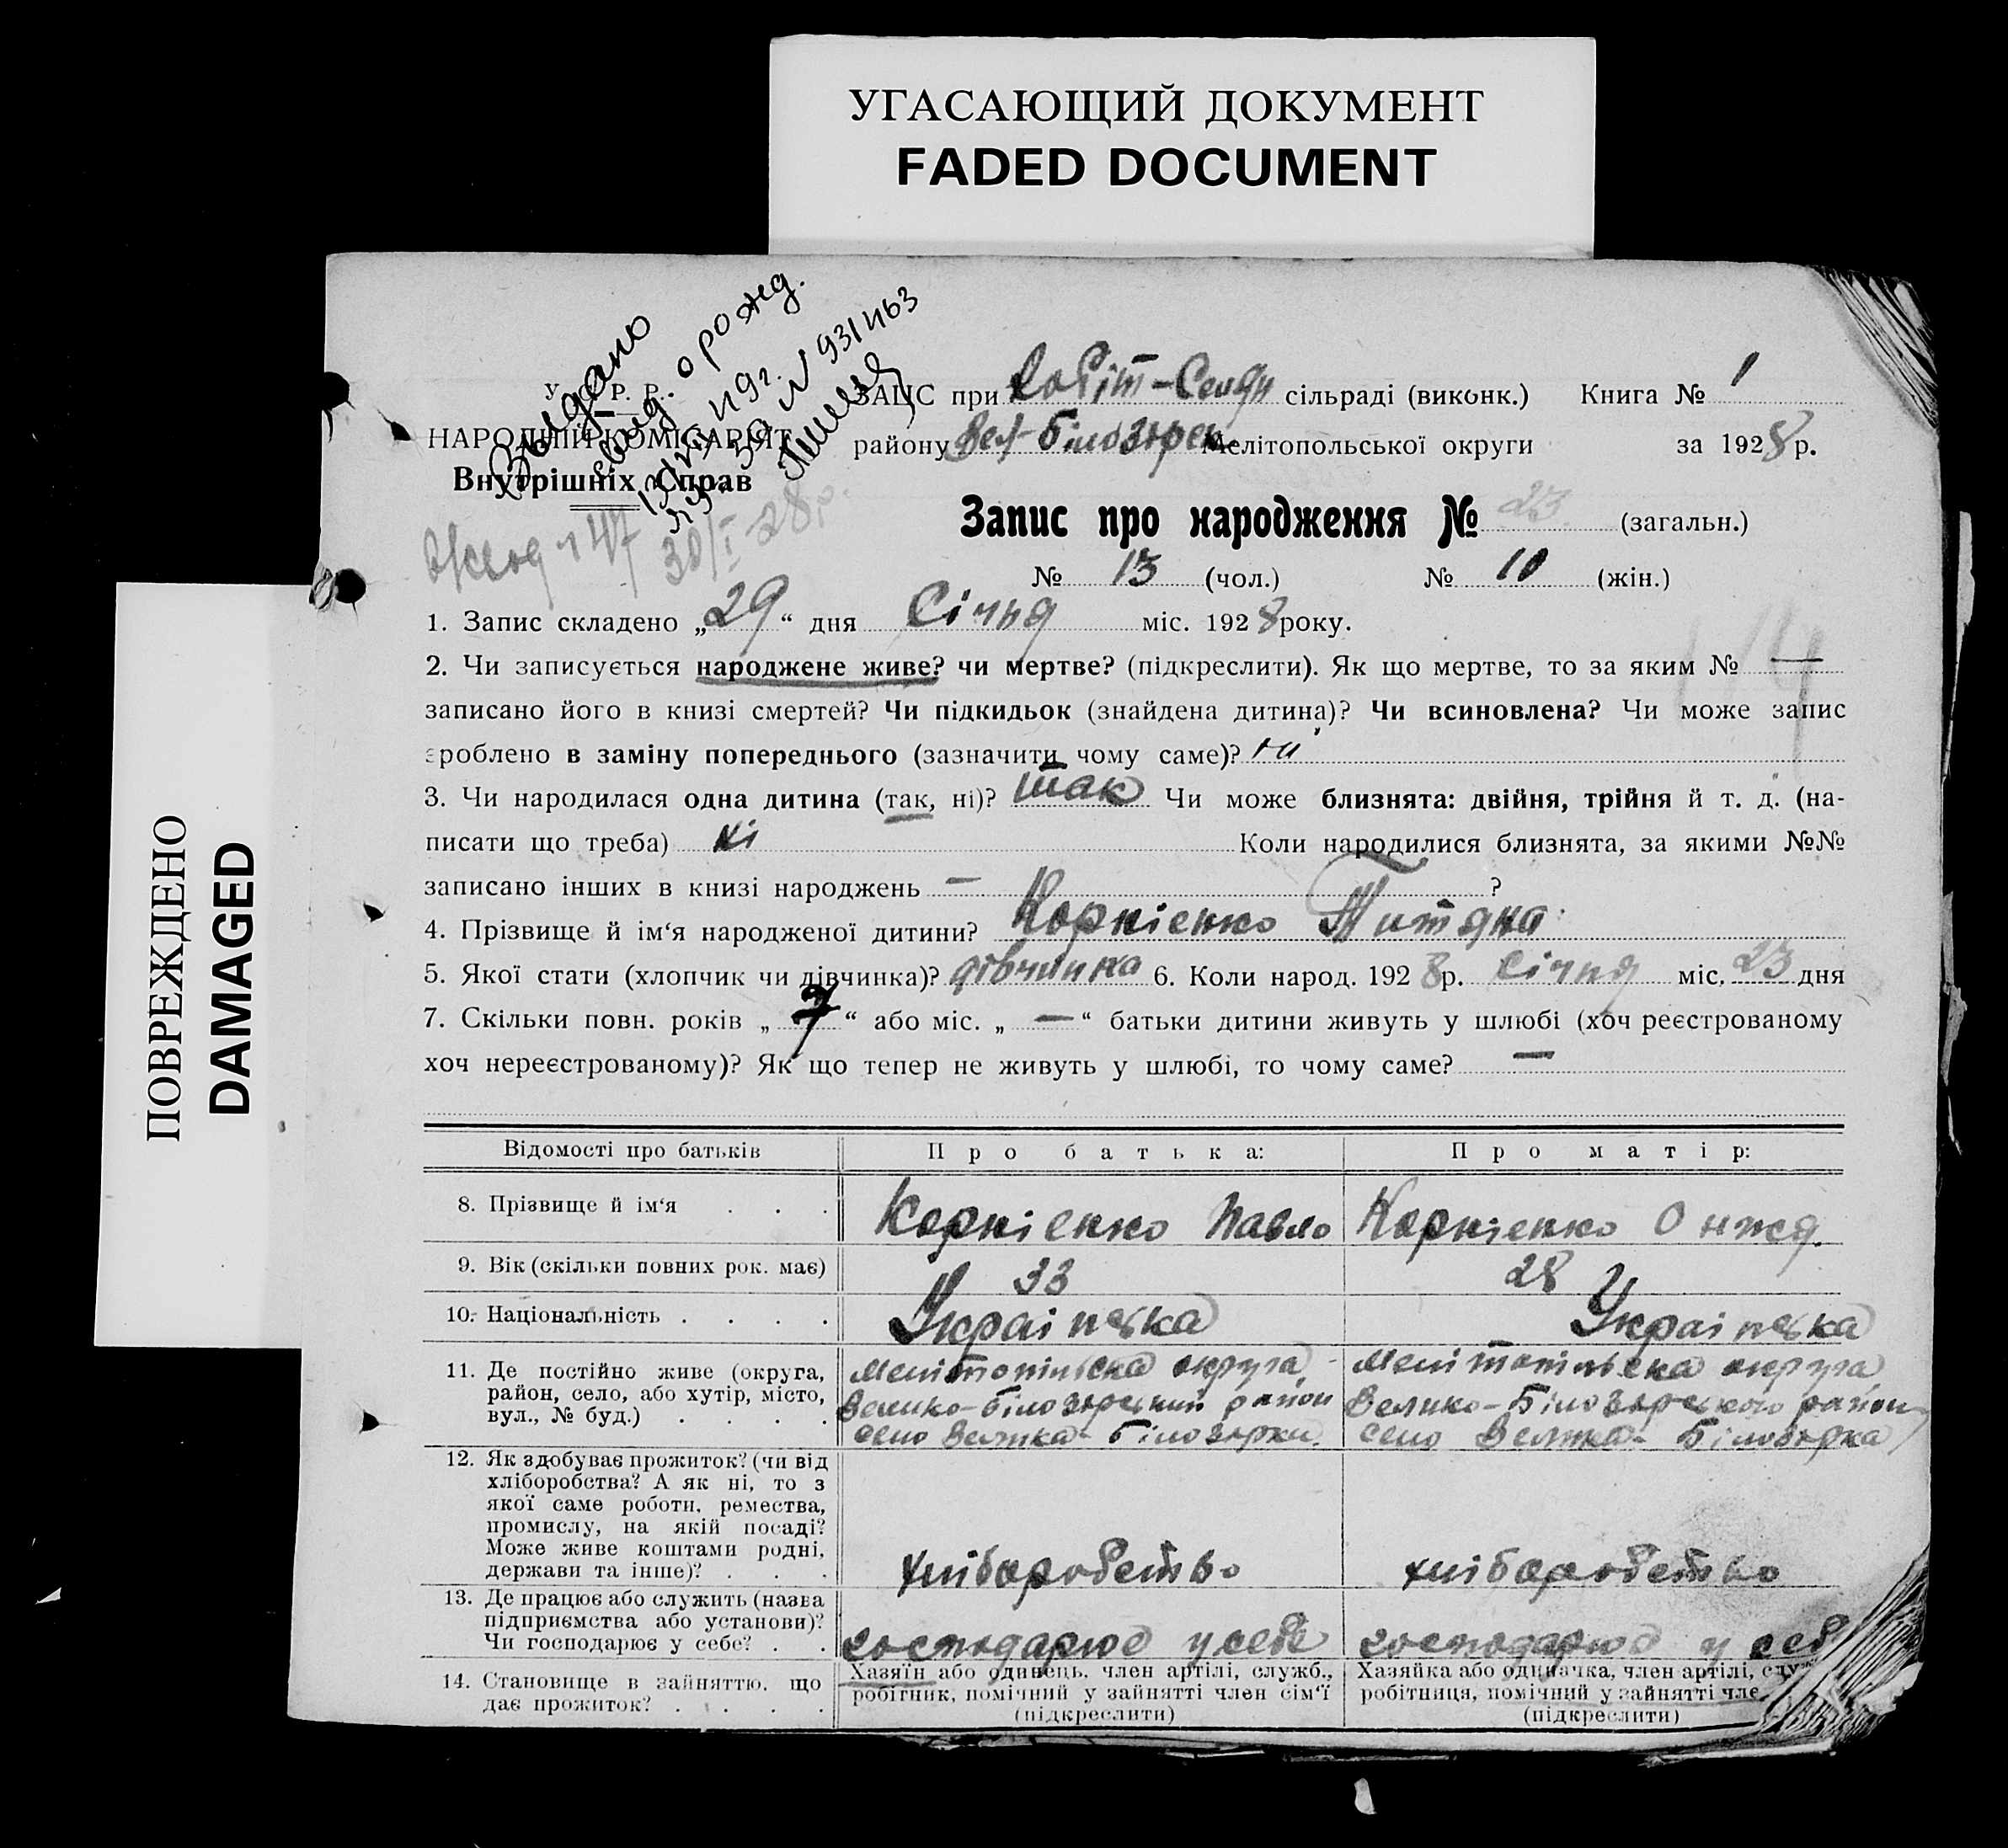 УГАСАЮЩИЙ ДОКУМЕНТ
FADED DOCUMENT
ПОВРЕЖДЕНО
DAMAGED
Выдано
свид. о рожд.
931463
У. С. Р. Р.
НАРОДНІЙ КОМІСАРІЯТ
Внутрішніх Справ
30/I-28р.
ЗАЦС при сільраді (виконк.) Книга № 1
району Вел-Білозірськ Мелітопольської округи за 1928 р.
Запис про народження № 23 (загальн.)
№ 13 (чол.) № 10 (жін.)
1. Запис складено „29“ дня Січня міс. 1928 року.
2. Чи записується народжене живе? чи мертве? (підкреслити). Як що мертве, то за яким № —
записано його в книзі смертей? Чи підкидьок (знайдена дитина)? Чи всиновлена? Чи може запис
зроблено в заміну попереднього (зазначити чому саме)? ні
3. Чи народилася одна дитина (так, ні)? так Чи може близнята: двійня, трійня й т. д. (на-
писати що треба) ні Коли народилися близнята, за якими №№
записано інших в книзі народжень — ?
4. Прізвище й ім‘я народженої дитини? Корнієнко Титяна
5. Якої стати (хлопчик чи дівчинка)? дівчинка 6. Коли народ. 1928р. Січня міс. 23 дня
7. Скільки повн. років „ 7 “ або міс. „ — “ батьки дитини живуть у шлюбі (хоч реєстрованому
хоч нереєстрованому)? Як що тепер не живуть у шлюбі, то чому саме? —
Відомості про батьків Про батька: Про матір:
8. Прізвище й ім‘я . . . Корнієнко Павло Корнієнко
9. Вік (скільки повних рок. має) 33 28
10. Національність . . . . Українська Українська
11. Де постійно живе (округа, район, село, або хутір, місто, вул., № буд.) . . . .
Мелітопільска округа Велико-Білозірський район село Велика-Білозірка
Мелітопільска округа Велико-Білозірського район село Велика-Білозірка
12. Як здобуває прожиток? (чи від
хліборобства? А як ні, то з
якої саме роботи, ремества,
промислу, на якій посаді?
Може живе коштами родні,
держави та інше)? . . . хліборобство хліборобство
13. Де працює або служить (назва
підприємства або установи)?
Чи господарює у себе? . . господарює у себе господарює у себе
14. Становище в зайняттю, що
дає прожиток? . . . .
Хазяїн або одинець, член артілі, служб.,
робітник, помічний у зайнятті член сім‘ї
(підкреслити)
Хазяйка або одиначка, член артілі, служ
робітниця, помічний у зайнятті чле
(підкреслити)